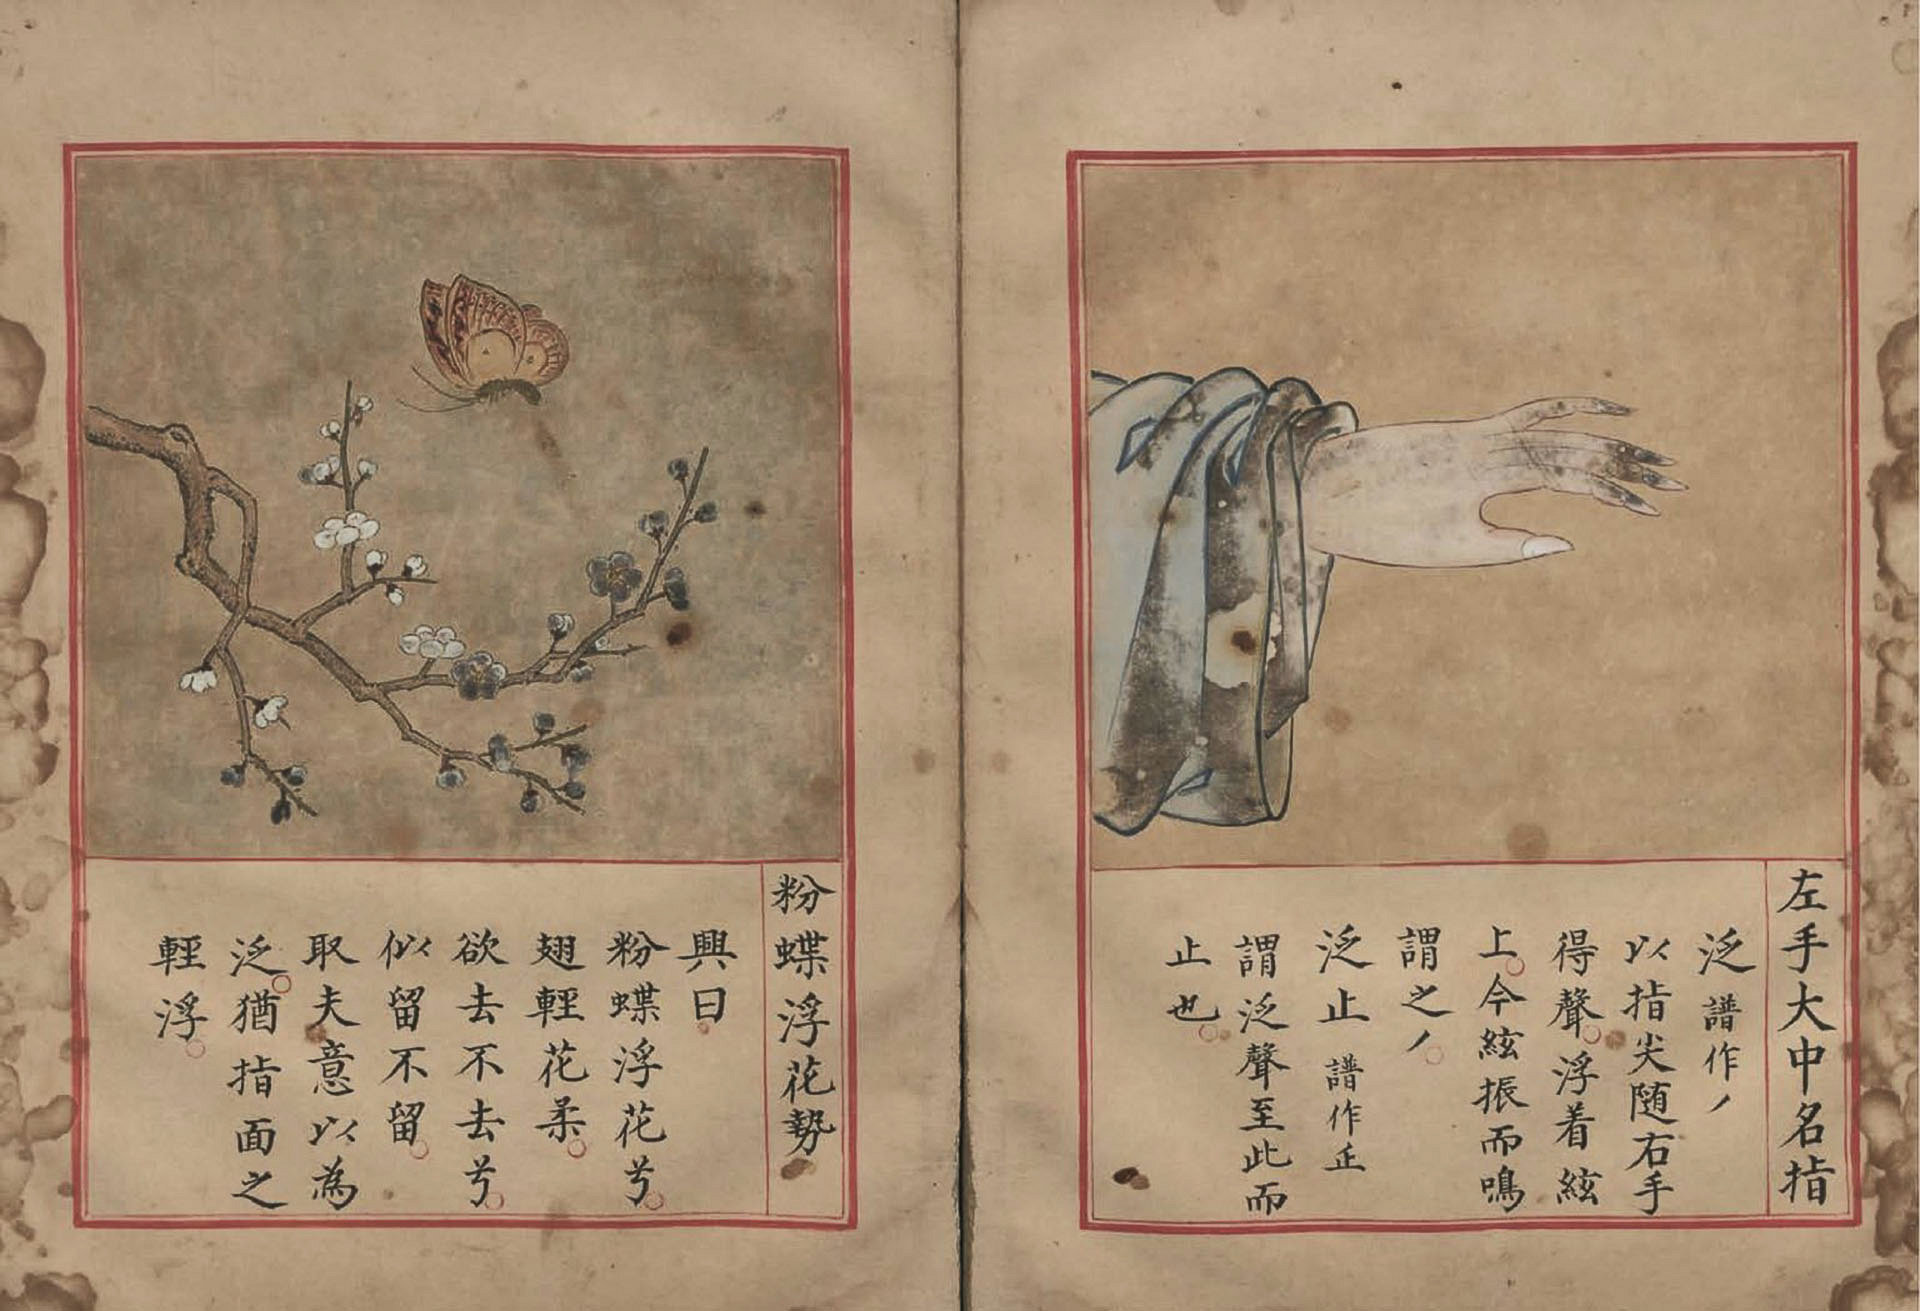 左手大中名指
泛 譜作丿
以指尖随右手
得聲。浮着絃
上。令絃振而鳴
謂之丿。
泛止 譜作㱏
謂泛聲至此而
止也。
粉蝶浮花勢
興曰。
粉蝶浮花兮。
翅輕花柔。
欲去不去兮。
似留不留。
取夫意以為
泛。猶指面之
輕浮。